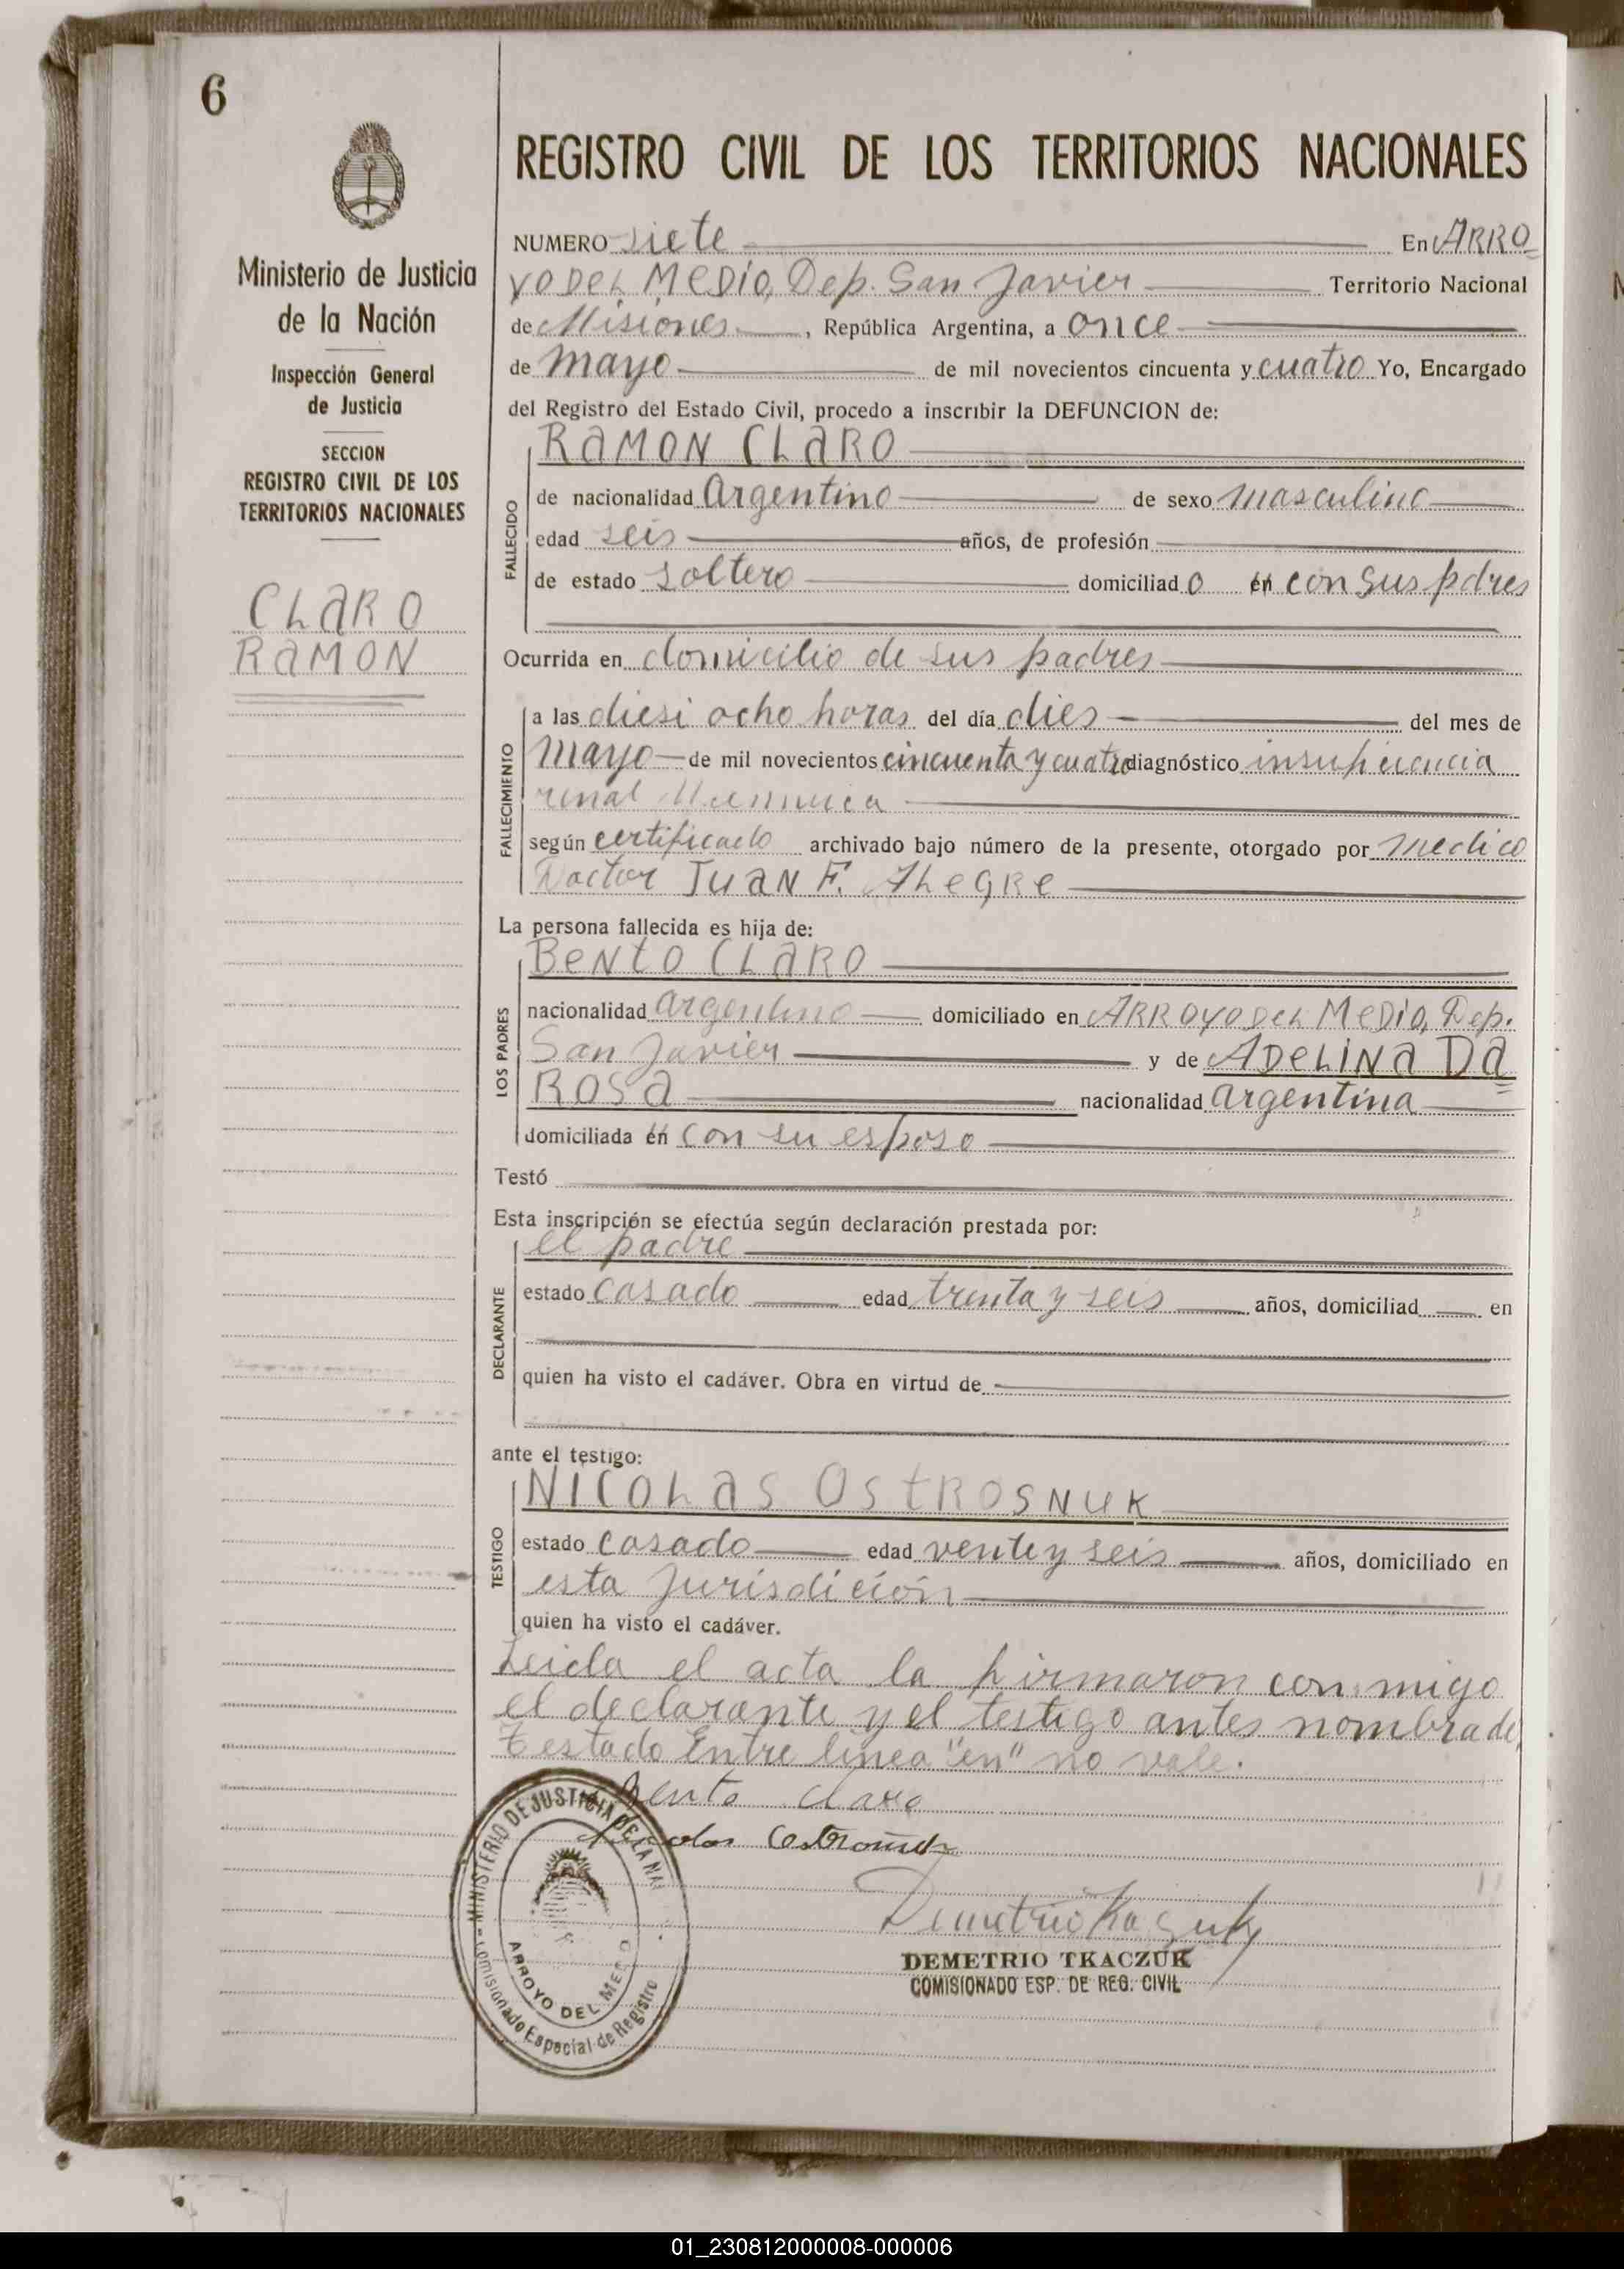 6
Ministerio de Justicia
de la Nación
Inspección General
de Justicia
SECCION
REGISTRO CIVIL DE LOS
TERRITORIOS NACIONALES
CLARO
RAMON
REGISTRO CIVIL DE LOS TERRITORIOS NACIONALES
NUMERO siete En ARRO
YO DEL MEDIO, Dep. San Javier Territorio Nacional
de Misiones, República Argentina, a once
de mayo de mil novecientos cincuenta y cuatro Yo, Encargado
del Registro del Estado Civil, procedo a inscribir la DEFUNCION de:
FALLECIDO
RAMON CLARO
de nacionalidad Argentino de sexo masculino
edad seis años, de profesión
de estado soltero domiciliado en con sus pdres
Ocurrida en domicilio de sus padres
FALLECIMIENTO
a las diesi ocho horas del día dies del mes de
mayo de mil novecientos cincuenta y cuatro diagnóstico insuficiencia
renal
según certificado archivado bajo número de la presente, otorgado por medico
Doctor JUAN F. ALEGRE
La persona fallecida es hija de:
LOS PADRES
BENTO CLARO
nacionalidad argentino domiciliado en ARROYO DEL MEDIO, Dep.
San Javier y de ADELINA DA
ROSA nacionalidad argentina
domiciliada en con su esposo
Testó
Esta inscripción se efectúa según declaración prestada por:
DECLARANTE
el padre
estado casado edad trenta y seis años, domiciliad en
quien ha visto el cadáver. Obra en virtud de
ante el testigo:
TESTIGO
NICOLAS OSTROSNUK
estado casado edad vente y seis años, domiciliado en
esta jurisdición
quien ha visto el cadáver.
Leida el acta la firmaron con migo
el declarante y el testigo antes nombrado,
Testado Entre linea "en" no vale.
Bento Claro
Nicolas
MINISTERIO DE JUSTICIA DE LA NA
ARROYO DEL MEDIO
Comisionado Especial de Registro
DEMETRIO TKACZUK
COMISIONADO ESP. DE REG. CIVIL
01_230812000008-000006